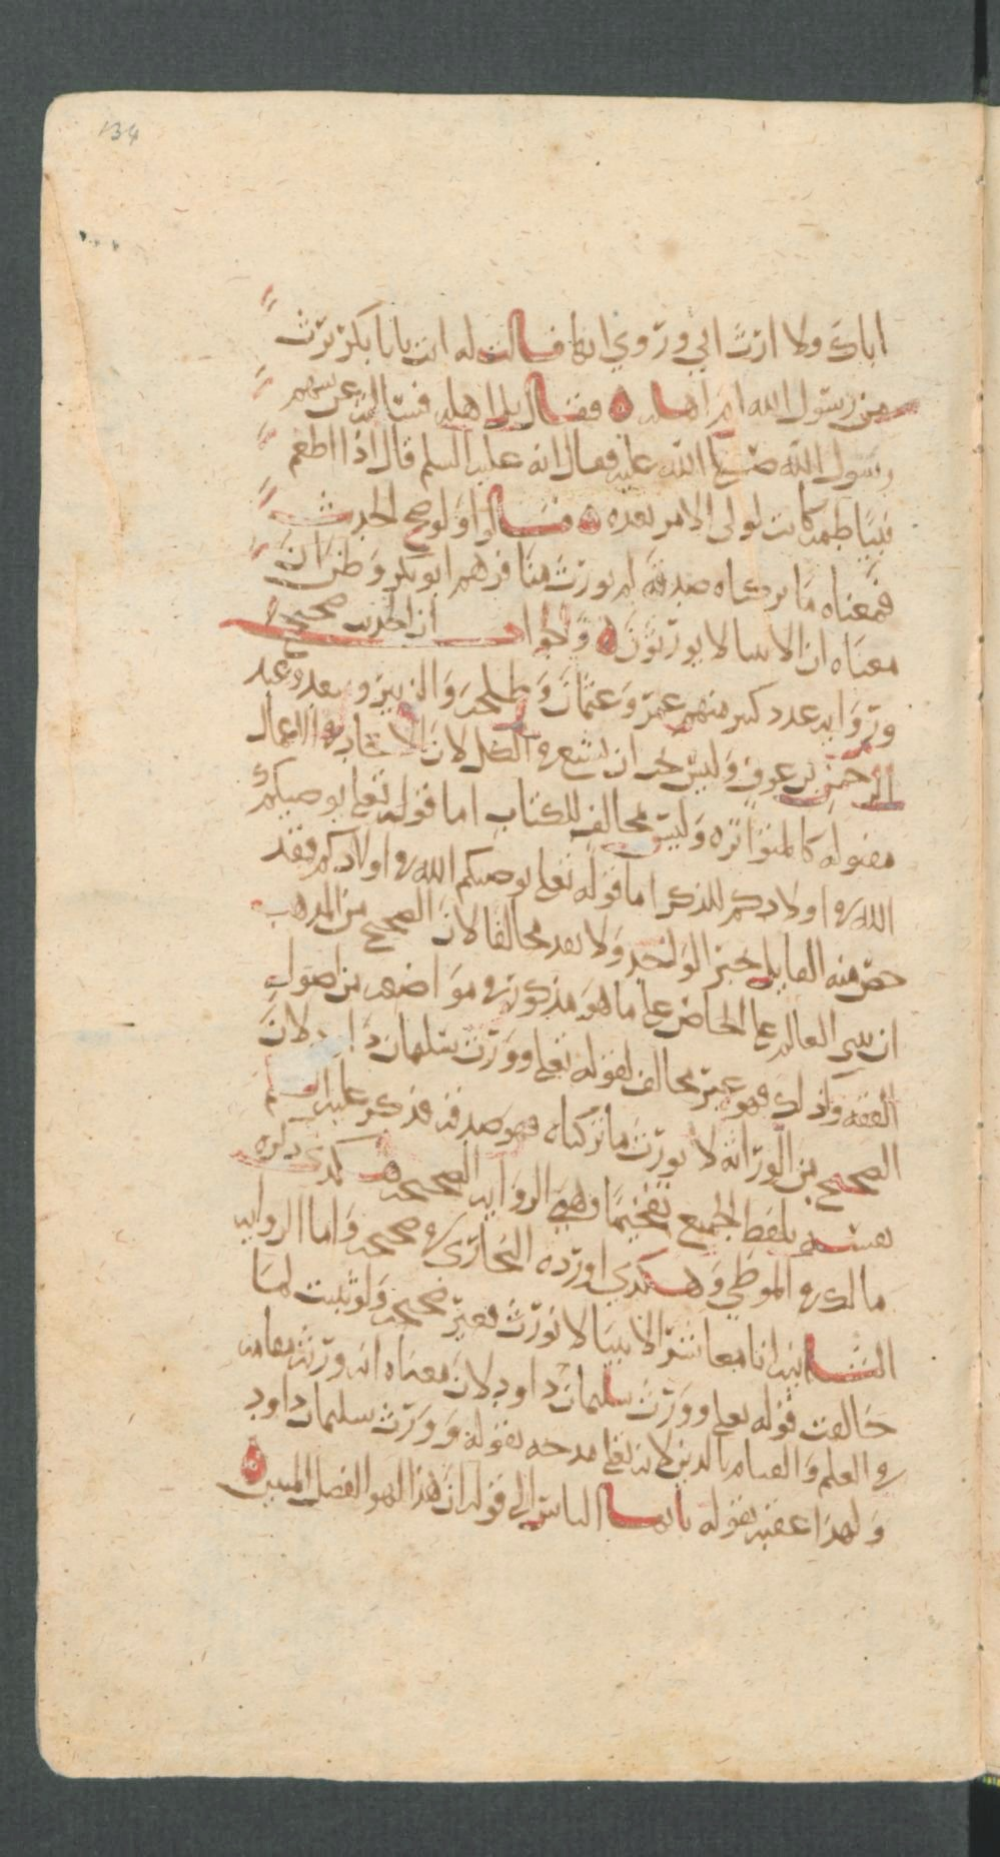 134
اباك ولا ارث ابي وروي انها قالت له انت يابا بكر ترث
من رسول الله ام اهله فقال بل اهله فسالته عن سهم
رسول الله صلى الله عليه فقال انه عليه السلم قال اذا اطعم
نبيا طعمه كانت لولي الامر بعده قالوا ولو صح الحديث
فمعناه ما تركناه صدقة لم يورث منا فوهم ابو بكر وظن ان
معناه ان الانبيا لا يورثون والجواب ان الحديث صحيح
ورواية عدد كبير منهم عمر وعثمان وطلحة والزبير وسعد وعبد
الرحمن بن عوف وليس يجب ان يسمع الكل لان الاحاد في الاعمال
مقبوله كالمتواتره وليس مخالف للكتاب اما قوله تعلى يوصيكم
الله في اولادكم للذكر اما قوله تعلى يوصيكم الله في اولادكم فقد
خص منه القاتل بخبر الواحد ولا يعد مخالفا لان الصحيح من المذهب
ان يبنى العام على الخاص على ما هو مذكور في مواضعه من اصول
الفقه وكذلك فهو غير مخالف لقوله تعلى وورث سليمان داود لان
الصحيح من الرواية لا نورث ما تركناه فهو صدقه فذكر عليه السلم
نفسه بلفظ الجميع تفخيما وهي الرواية الصحيحة هكذى ذكره
مالك في الموطى وهكذى اورده البخاري في صحيحه واما الرواية
الثانيه انا معاشر الانبيا لا نورث فغير صحيحه ولو ثبتت لما
خالفت قوله تعلى وورث سليمان داود لان معناه انه ورثه مقامه
في العلم والقيام بالدين لانه تعلى مدحه بقوله وورث سليمان داود
ولهذا عقبه بقوله يا ايها الناس الى قوله ان هذا لهو الفضل المبين